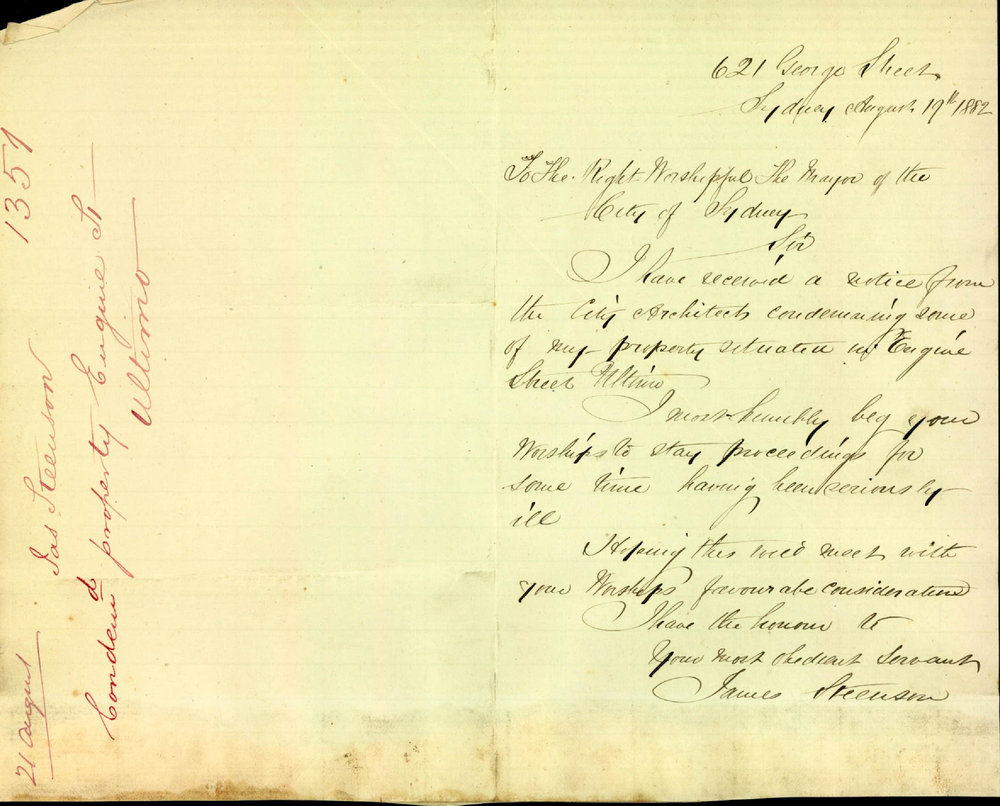 621 George Street
Sydney August 17th 1882
To The Right Worshipful The Mayor of the
City of Sydney
Sir
I have received a notice from
the City Architects condemning some
of my property situated in Engine
Street Ultimo
I most humbly beg your
Worships to stay proceedings for
some time having been seriously
ill
Hoping this will meet with
your Worships favourabe consideration
I have the honour to
Your most obedient Servant
James Steenson
21 August
Jas Steenson 1357
Condemd property Engine St
Ultimo